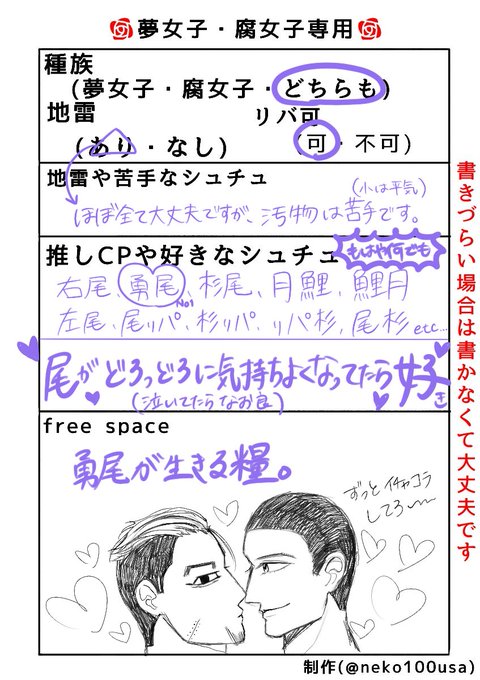 夢女子・腐女子専用
種族
(夢女子・腐女子・どちらも)
地雷 リバ可
(あり・なし) (可・不可)
地雷や苦手なシュチュ
(小は平気)
ほぼ全て大丈夫ですが、汚物は苦手です。
推しCPや好きなシュチュ もはや何でも
右尾、勇尾、杉尾、月鯉、鯉月
No1
左尾、尾リパ、杉リパ、リパ杉、尾杉etc...
尾がどろっどろに気持ちよくなってたら好き
(泣いてたらなお良)
free space
勇尾が生きる糧。
ずっとイチャコラ
してろ〜〜
書きづらい場合は書かなくて大丈夫です
制作(@neko100usa)